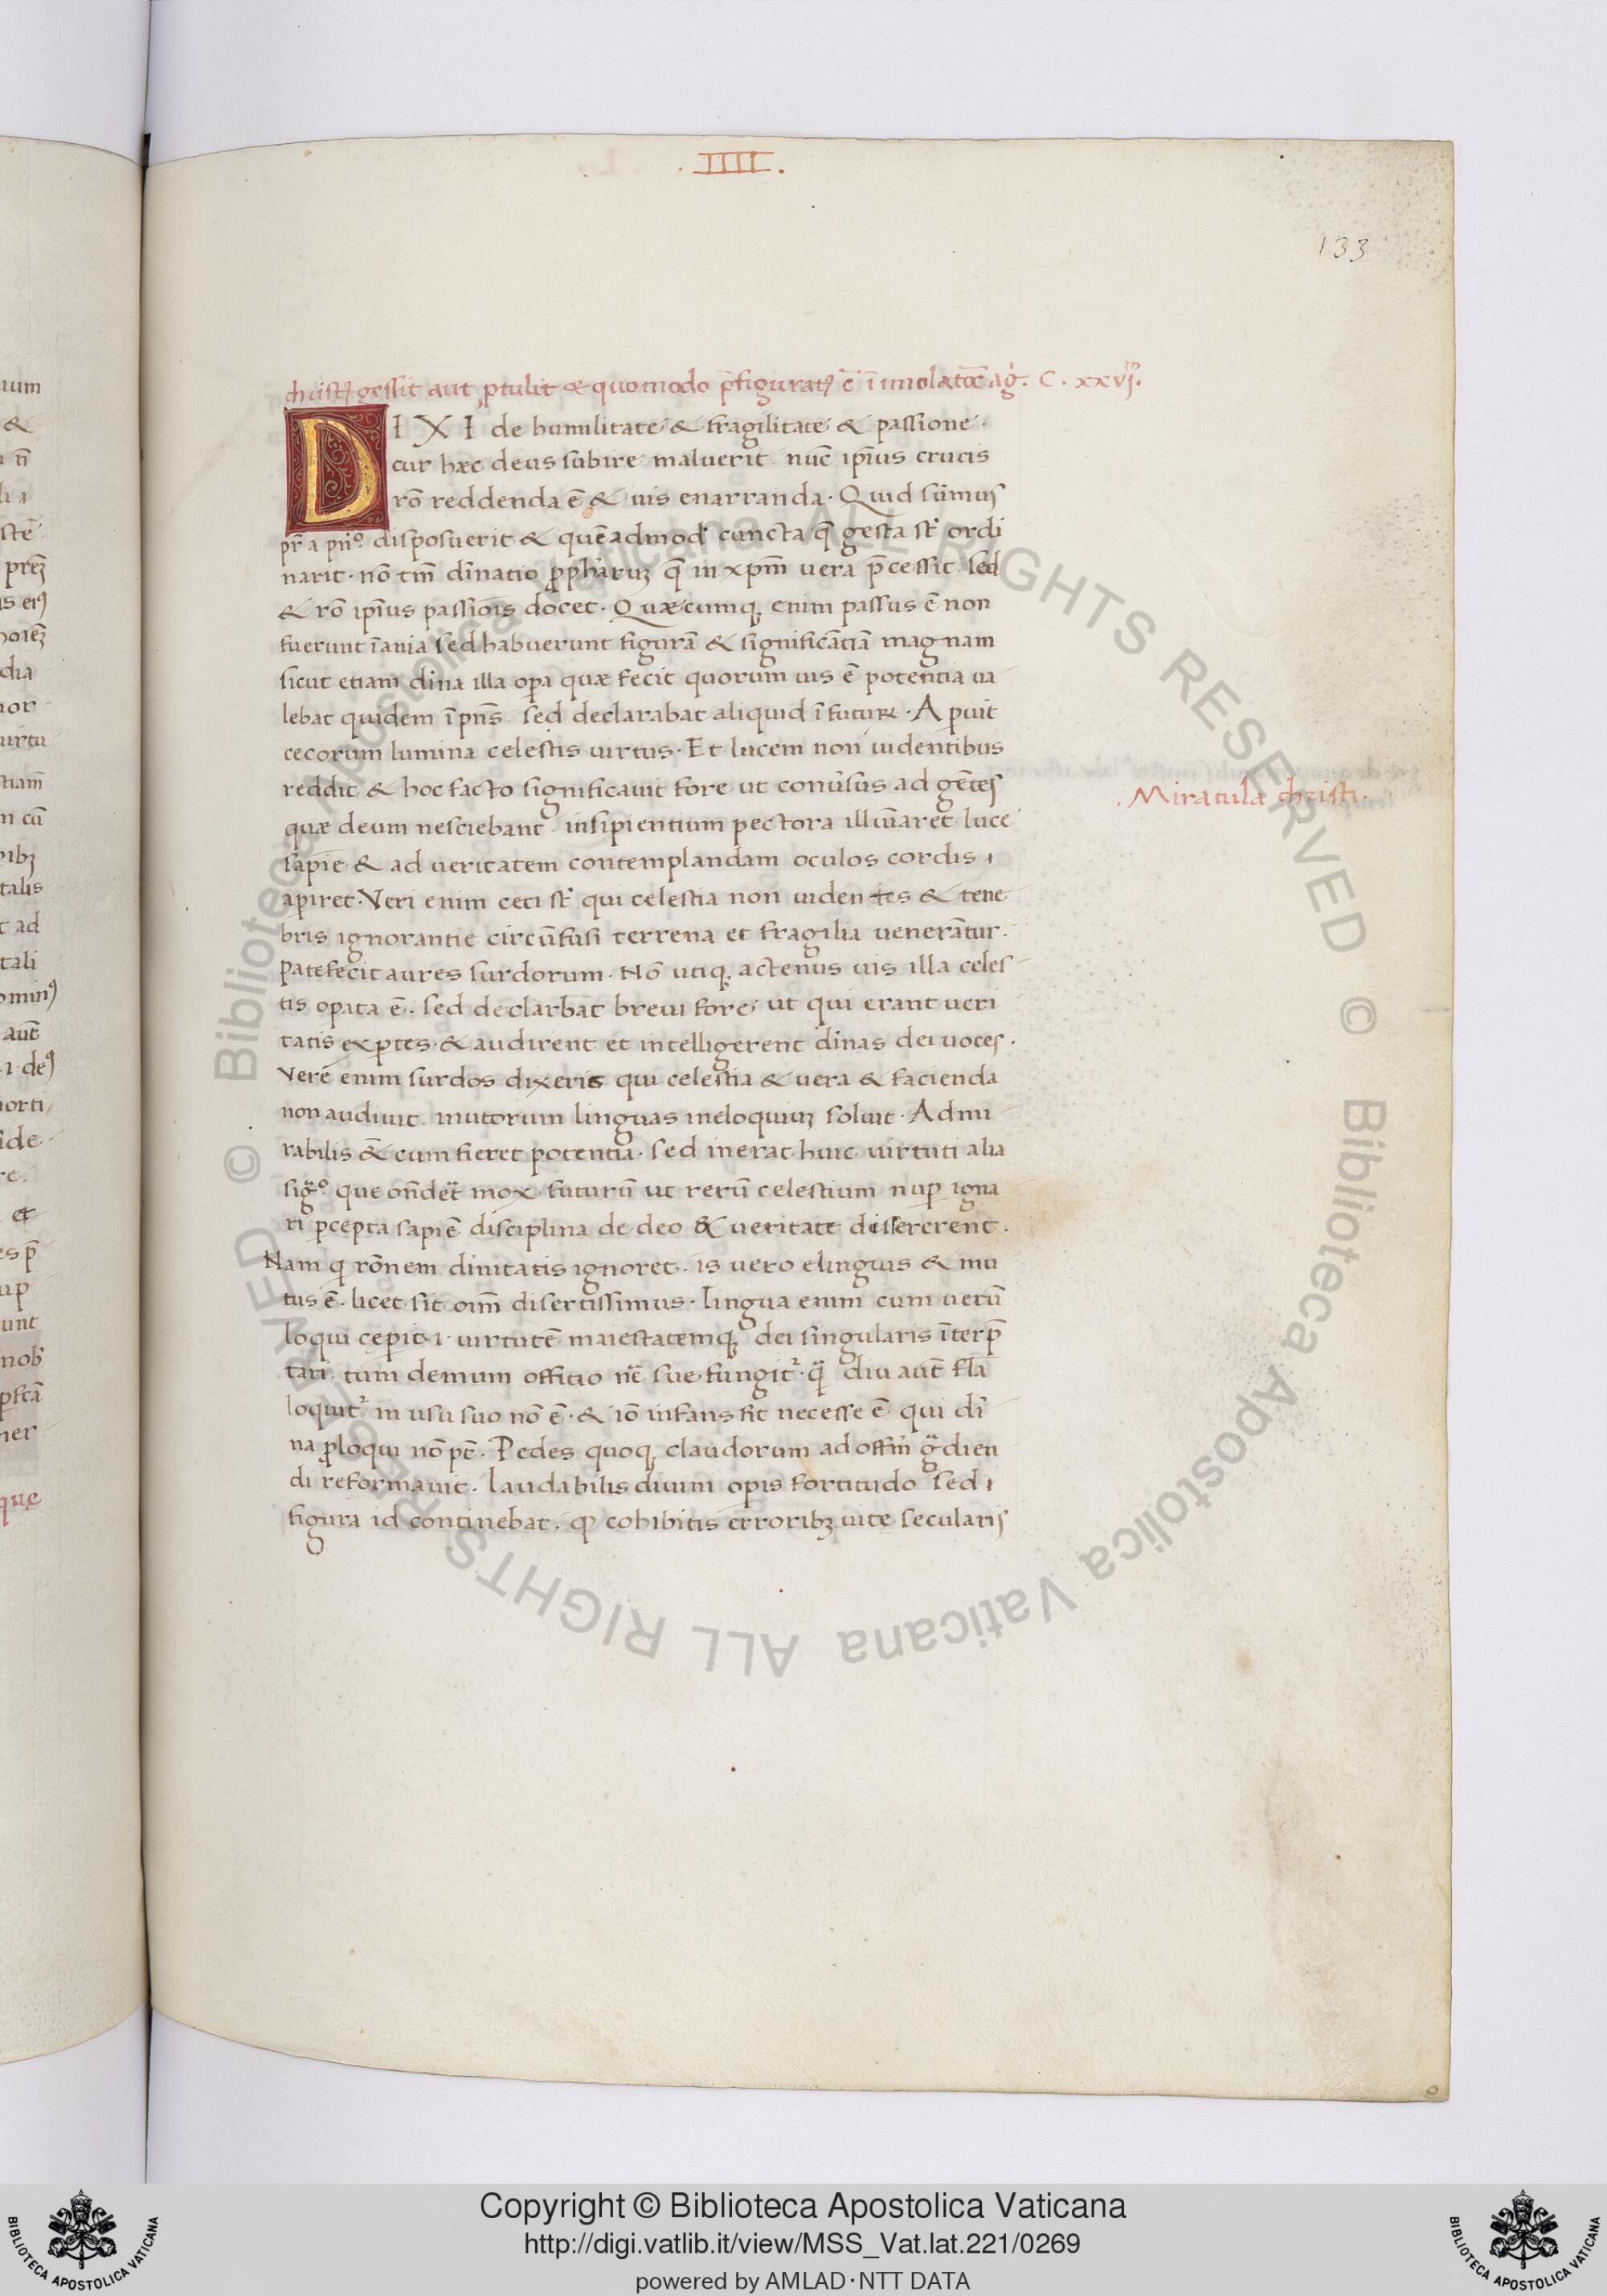 .IIII.
133
christꝰ gessit aut ꝑtulit & quomodo p̄figuratꝰ ē ī imolatōe ag̍. C. xxvj.
DIXI de humilitate & fragilitate & passione.
cur hæc deus subire maluerit nūc ipīus crucis
rō reddenda ē & uis enarranda. Quid sūmus
pr̄ a pn̍º. disposuerit & quēadmod̍ cuncta q̄ gesta st̍ ordi
narit. nō tm̄ dīnatio ꝓphaꝝ q̄ in xpm̄ uera p̄cessit. sed
& rō ipīus passiois docet. Quæcumqꝫ enim passus ē non
fuerunt īania sed habuerunt figurā & significātiā magnam
sicut etiam dīna illa oꝑa quæ fecit quorum uis ē potentia ua
lebat quidem ī pn̄s. sed declarabat aliquid ī futuꝝ. Aꝑuit
cecorum lumina celestis uirtus. Et lucem non uidentibus
reddit & hoc facto significauit fore ut conūsus ad gētes
quæ deum nesciebant insipientium pectora illūaret luce
sapīe & ad ueritatem contemplandam oculos cordis ı
aꝑiret. Veri enim ceci st̍ qui celestia non uidentes & tene
bris ignorantie circūfusi terrena et fragilia uenerātur.
patefecit aures surdorum. Nō utiqꝫ actenus uis illa celes
tis oꝑata ē. sed declarbat breui fore ut qui erant ueri
tatis exꝑtes. & audirent et intelligerent dīnas dei uoces.
Vere enim surdos dixeris qui celestia & uera & facienda
non audiuit. mutorum linguas ineloquiuꝫ soluit. Admi
rabilis & cum fieret potentia. sed inerat huic uirtuti alia
sig̈º. que on̄det̄ mox futurū ut rerū celestium nuꝑ igna
ri ꝑcepta sapiē disciplina de deo & ueritate dissererent.
Nam q̍ rōnem dīnitatis ignoret. is uero elinguis & mu
tus ē. licet sit oīm disertissimus. Lingua enim cum uerū
loqui ceꝑit .i. uirtutē maiestatemqꝫ dei singularis īterp̄
tari. tum demum offitio nē sue fungit̍. q̄ diu aut̄ fl̄a
loquit̍ in usu suo nō ē. & iō infans sit necesse ē qui dī
na ꝓloqui nō pt̄. Pedes quoqꝫ claudorum ad offm̄ g̈dien
di reformauit. laudabilis diuini oꝑis fortitudo sed ı
figura id continebat. ꝙ cohibitis erroribꝫ uite secularis
.Miracula christi.
Copyright © Biblioteca Apostolica Vaticana
http://digi.vatlib.it/view/MSS_Vat.lat.221/0269
powered by AMLAD·NTT DATA
BIBLIOTECA APOSTOLICA VATICANA
BIBLIOTECA APOSTOLICA VATICANA
© Biblioteca Apostolica Vaticana ALL RIGHTS RESERVED © Biblioteca Apostolica Vaticana ALL RIGHTS RESERVED